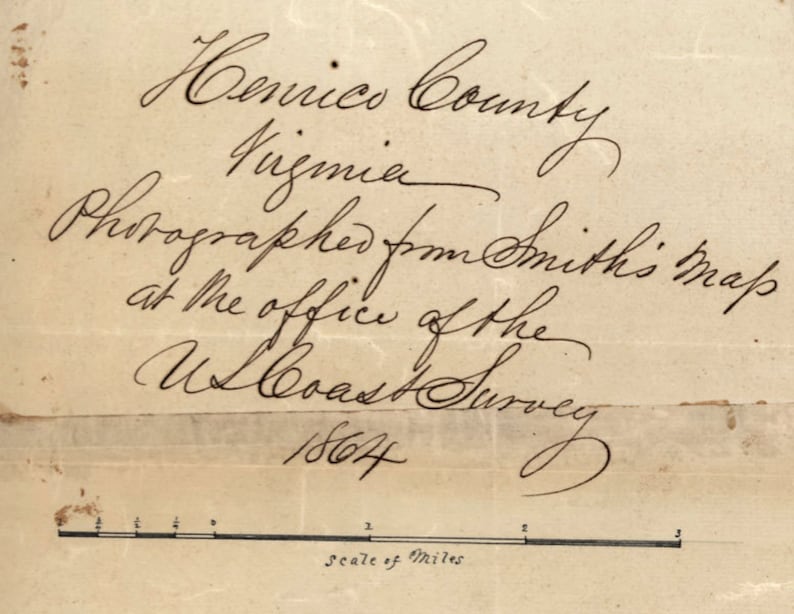 Henrico County
Virginia
Photographed from Smith's Map
at the office of the
US Coast Survey
1864
1 3/4 1/2 1/4 0 1 2 3
Scale of Miles